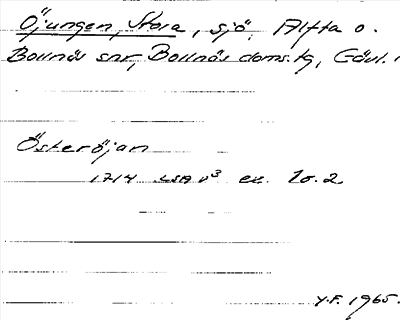 Öjungen, Stora, sjö, Alfta o.
Bollnäs snr, Bollnäs doms.tg, Gävl.
Österöjan
1714 LSA v³ ex. 10.2
Y.F. 1965.